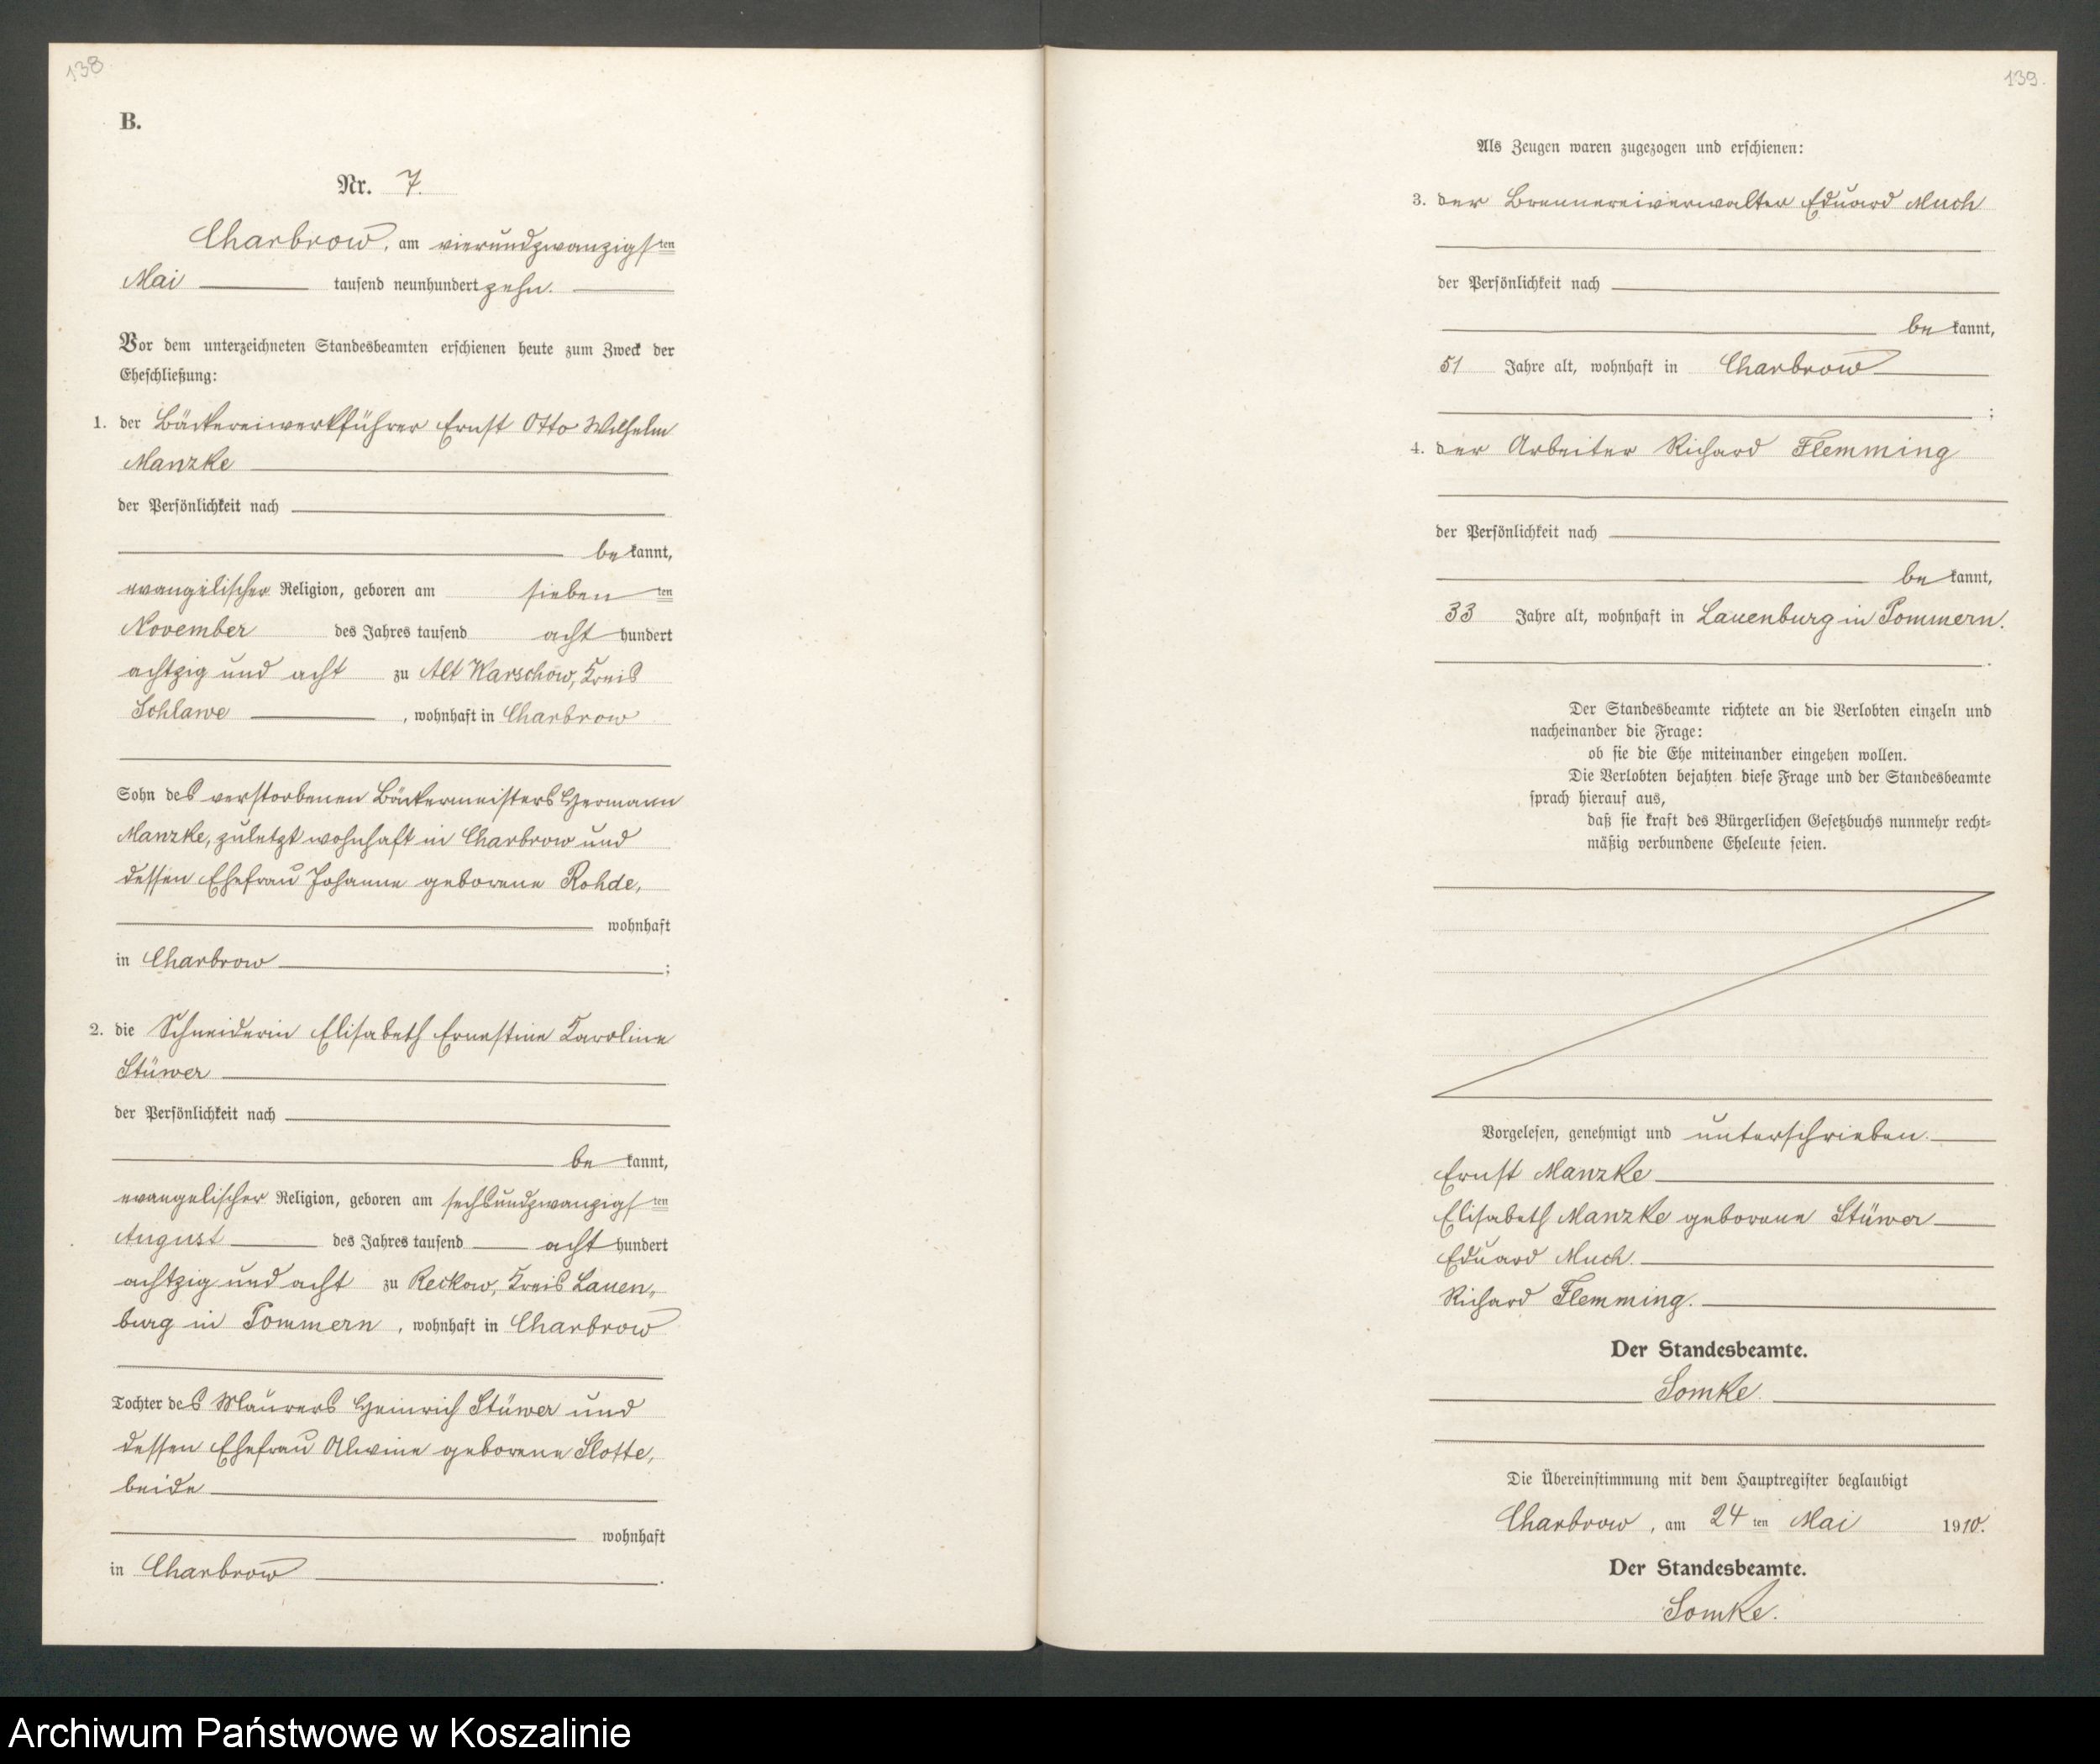 138
B.
Nr. 7.
Charbrow, am vierundzwanzigsten
Mai tausend neunhundert zehn.
Vor dem unterzeichneten Standesbeamten erschienen heute zum Zweck der
Eheschließung:
1. der Bäckereiwerkführer Ernst Otto Wilhelm
Manzke
der Persönlichkeit nach
be kannt,
evangelischer Religion, geboren am sieben ten
November des Jahres tausend acht hundert
achtzig und acht zu Alt Warschow, Kreis
Schlawe, wohnhaft in Charbrow
Sohn des verstorbenen Bäckermeisters Hermann
Manzke, zuletzt wohnhaft in Charbrow und
dessen Ehefrau Johanne geborene Rohde,
wohnhaft
in Charbrow ;
2. die Schneiderin Elisabeth Ernestine Karoline
Stüwer
der Persönlichkeit nach
be kannt,
evangelischer Religion, geboren am sechsundzwanzigsten
August des Jahres tausend acht hundert
achtzig und acht zu Reckow, Kreis Lauen-
burg in Pommern, wohnhaft in Charbrow
Tochter des Maurers Heinrich Stüwer und
dessen Ehefrau Alwine geborene Slotte,
beide
wohnhaft
in Charbrow .
139.
Als Zeugen waren zugezogen und erschienen:
3. der Brennereiverwalter Eduard Much
der Persönlichkeit nach
be kannt,
51 Jahre alt, wohnhaft in Charbrow
;
4. der Arbeiter Richard Flemming
der Persönlichkeit nach
be kannt,
33 Jahre alt, wohnhaft in Lauenburg in Pommern.
.
Der Standesbeamte richtete an die Verlobten einzeln und
nacheinander die Frage:
ob sie die Ehe miteinander eingehen wollen.
Die Verlobten bejahten diese Frage und der Standesbeamte
sprach hierauf aus,
daß sie kraft des Bürgerlichen Gesetzbuchs nunmehr recht-
mäßig verbundene Eheleute seien.
Vorgelesen, genehmigt und unterschrieben.
Ernst Manzke
Elisabeth Manzke geborene Stüwer
Eduard Much.
Richard Flemming.
Der Standesbeamte.
Somke.
Die Übereinstimmung mit dem Hauptregister beglaubigt
Charbrow, am 24 ten Mai 1910.
Der Standesbeamte.
Somke.
Archiwum Państwowe w Koszalinie